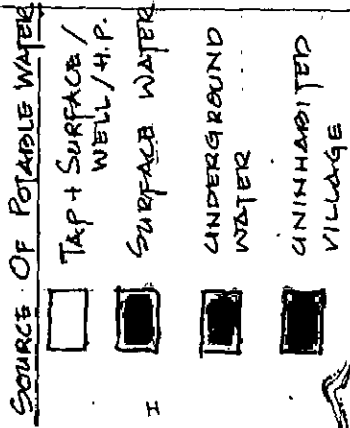 SOURCE OF POTABLE WATER
TAP + SURFACE /
WELL / H.P.
SURFACE WATER
UNDERGROUND
WATER
UNINHABITED
VILLAGE